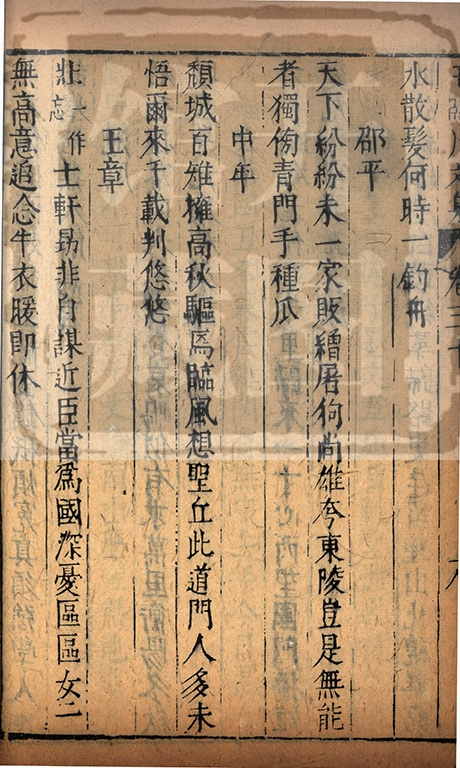 水散髮何時一釣舟
邵平
天下紛紛未一家販繒屠狗尚雄夸東陵豈是無能
者獨傍青門手種瓜
中牟
頽城百雉擁高秋驅馬臨風想聖丘此道門人多未
悟爾來千載判悠悠
王章
壯一作忘士軒昂非自謀近臣當爲國深憂區區女二
無高意追念牛衣暖即休